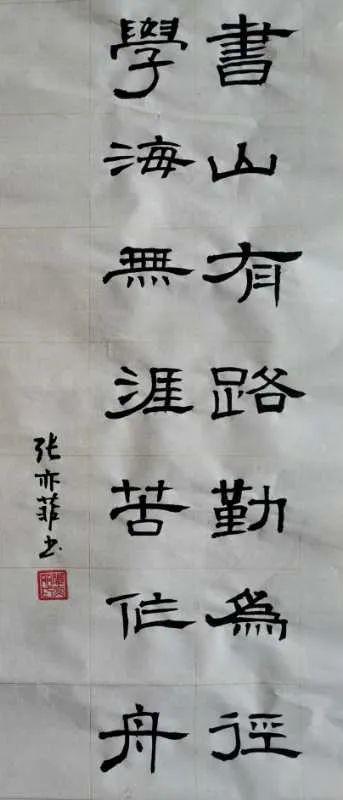 書山有路勤為徑
學海無涯苦作舟
张亦菲书